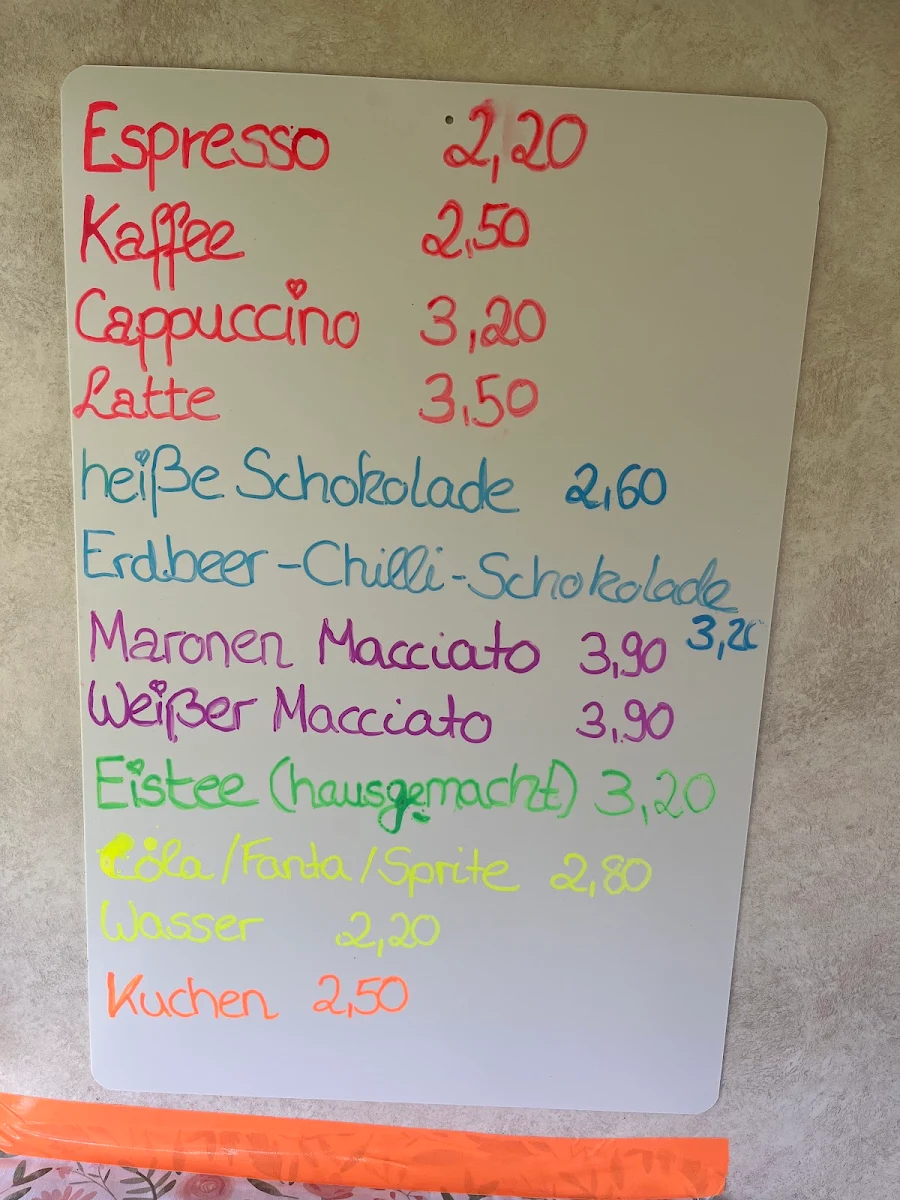 Espresso 2,20
Kaffee 2,50
Cappuccino 3,20
Latte 3,50
heiße Schokolade 2,60
Erdbeer-Chilli-Schokolade
3,20
Maronen Macciato 3,90
Weißer Macciato 3,90
Eistee (hausgemacht) 3,20
Cola/Fanta/Sprite 2,80
Wasser 2,20
Kuchen 2,50